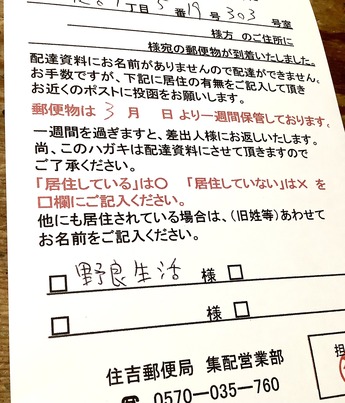 丁目5番19号303号室
様方 のご住所に
様宛の郵便物が到着いたしました。
配達資料にお名前がありませんので配達ができません。
お手数ですが、下記に居住の有無をご記入して頂き
お近くのポストに投函をお願いします。
郵便物は 3月 日より一週間保管しております。
一週間を過ぎますと、差出人様にお返しいたします。
尚、このハガキは配達資料にさせて頂きますので
ご了承ください。
「居住している」は○ 「居住していない」は× を
口欄にご記入ください。
他にも居住されている場合は、(旧姓等)あわせて
お名前をご記入ください。
□ 野良生活 様 □
□ 様 □
住吉郵便局 集配営業部
☎ 0570-035-760
担